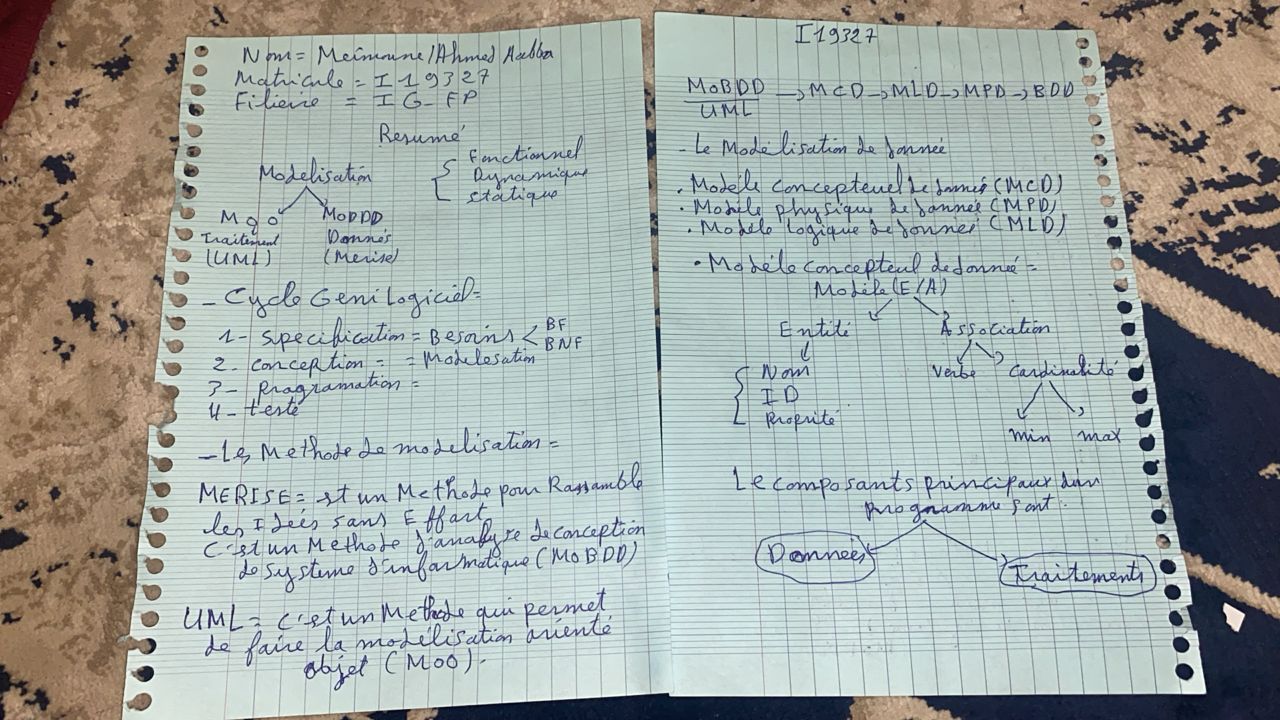 Nom = Meimoune/Ahmed Aabba
Matricule = I19327
Filiere = IG-FP
Resumé
Modelisation { Fonctionnel
Dynamique
statique
MOO MoDDD
Traitement Donnés
(UML) (Merise)
- Cycle Geni Logiciel =
1- specification = Besoins < BF
BNF
2- conception = = Modelesation
3- programation =
4- teste
- Les Methode de modelisation =
MERISE = st un Methode pour Rassamble
les Ideés sans Effort
C'st un Methode d'analyse de conception
de systeme d'informatique (MoBDD)
UML = C'st un Methode qui permet
de faire la modélisation orienté
objet (MOO).
I19327
MoBDD → MCD → MLD → MPD → BDD
UML
- Le Modélisation de donnée
. Modéle concepteuel de donneé (MCD)
. Modéle physique de donneé (MPD)
. Modéle logique de donneé (MLD)
• Modéle concepteul de donneé =
Modéle (E/A)
Entité Association
{ Nom Verbe Cardinalité
ID
Proprité
min max
Le composants principaux d'un
programme sont :
Donnees Traitements